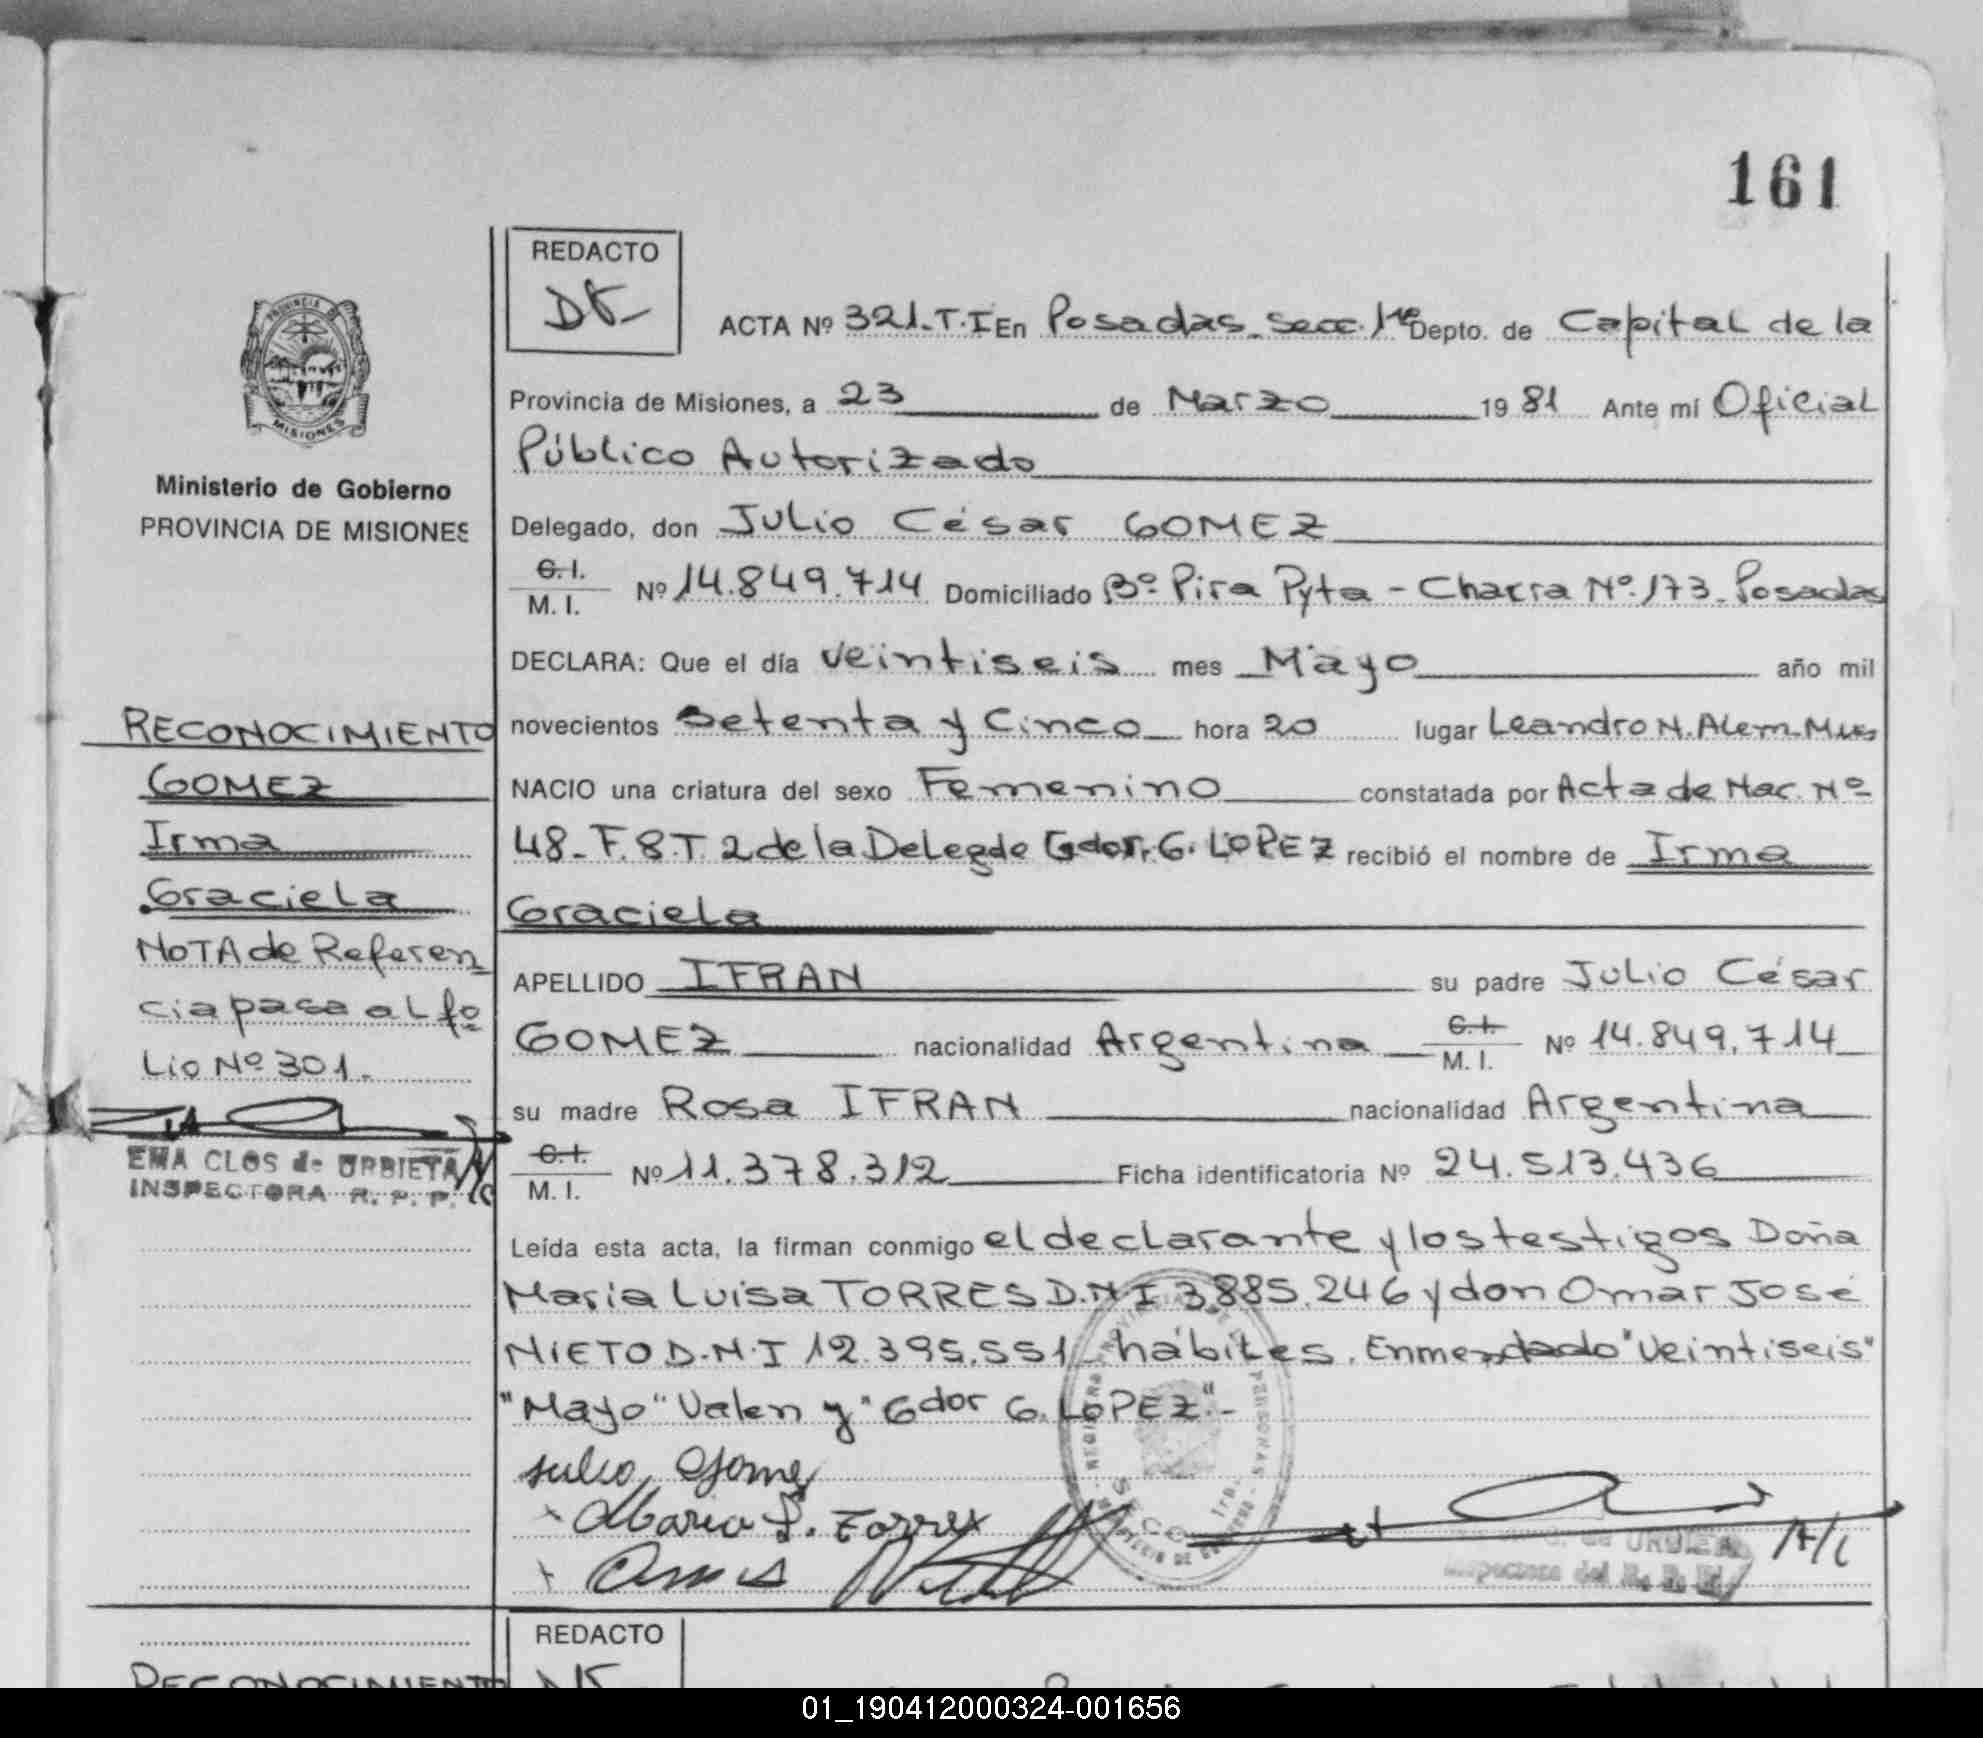 161
REDACTO
ACTA Nº 321.T.I En Posadas. Secc. 1ra Depto. de Capital de la
Provincia de Misiones, a 23 de Marzo 1981 Ante mí Oficial
Público Autorizado
PROVINCIA DE
MISIONES
Ministerio de Gobierno
PROVINCIA DE MISIONES
Delegado, don Julio César GOMEZ
C.I.
M. I. Nº 14.849.714 Domiciliado Bº Pira Pyta - Chacra Nº 173. Posadas
DECLARA: Que el día veintiseis mes Mayo año mil
novecientos setenta y Cinco hora 20 lugar Leandro N. Alem. Mnes
NACIO una criatura del sexo Femenino constatada por Acta de Nac. Nº
48 - F. 8. T. 2 de la Delegde Gdor. G. LOPEZ recibió el nombre de Irma
Graciela
APELLIDO IFRAN su padre Julio César
GOMEZ nacionalidad Argentina C.I. M. I. Nº 14.849.714
su madre Rosa IFRAN nacionalidad Argentina
C.I.
M. I. Nº 11.378.312 Ficha identificatoria Nº 24.513.436
Leída esta acta, la firman conmigo el declarante y los testigos Doña
Maria Luisa TORRES D.N.I 3.885.246 y don Omar José
NIETO D.N.I 12.395.551 hábiles. Enmendado "Veintiseis"
"Mayo" Valen y "Gdor G. LOPEZ".-
RECONOCIMIENTO
GOMEZ
Irma
Graciela
NOTA de Referen
cia pasa al fo
lio Nº 301.
EMA CLOS de URBIETA
INSPECTORA R. P. P.
Julio Gomez
Maria L. Torres
A/C
REDACTO
RECONOCIMIENTO
01_190412000324-001656